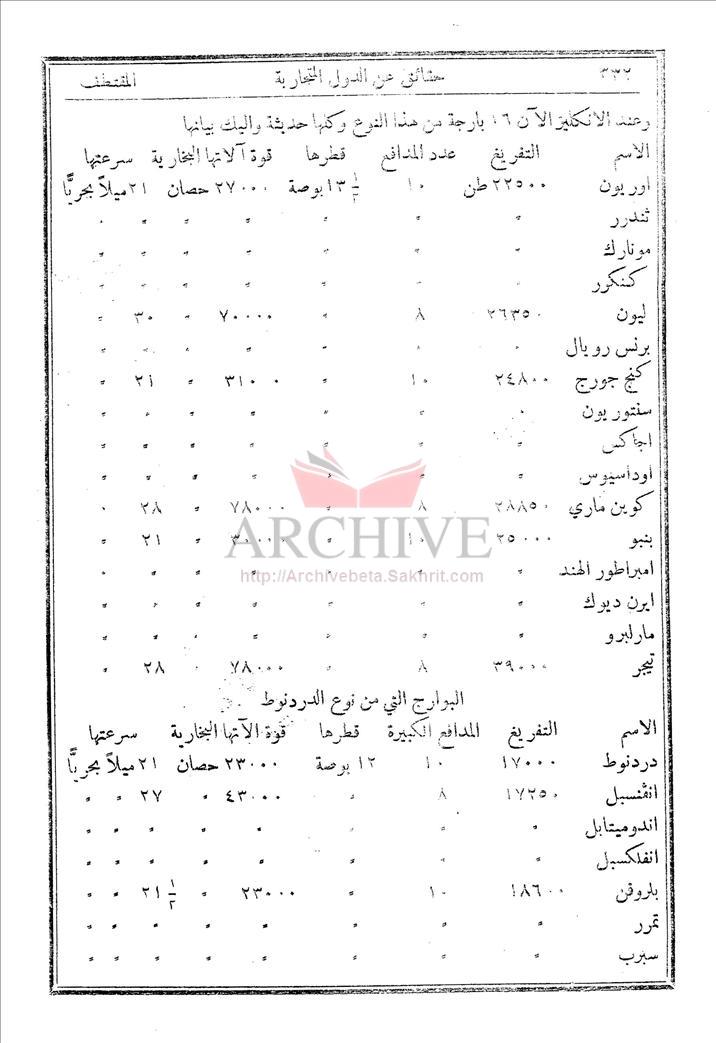 ٣٣٢ حقائق عن الدول المتحاربة المقتطف
وعند الانكليز الآن ١٦ بارجة من هذا النوع وكلها حديثة واليك بيانها
الاسم التفريغ عدد المدافع قطرها قوة آلاتها البخارية سرعتها
اوريون ٢٢٥٠٠ طن ١٠ ١٣ ١/٢ بوصة ٢٧٠٠٠ حصان ٢١ ميلاً بحريًّا
ثندرر " " " " " " "
مونارك " " " " " " "
كنكرور " " " " " " "
ليون ٢٦٣٥٠ ٨ " ٧٠٠٠٠ " ٣٠ "
برنس رويال " " " " " " "
كنج جورج ٢٤٨٠٠ ١٠ " ٣١٠٠٠ " ٢١ "
سنتوريون " " " " " " "
اجاكس " " " " " " "
اوداسيوس " " " " " " "
كوين ماري ٢٨٨٥٠ ٨ " ٧٨٠٠٠ " ٢٨ "
بنبو ٢٥٠٠٠ ١٠ " ٣٠٠٠٠ " ٢١ "
امبراطور الهند " " " " " " "
ايرن ديوك " " " " " " "
مارلبرو " " " " " " "
تيجر ٣٩٠٠٠ ٨ " ٧٨٠٠٠ " ٢٨ "
البوارج التي من نوع الدردنوط
الاسم التفريغ المدافع الكبيرة قطرها قوة آلاتها البخارية سرعتها
دردنوط ١٧٠٠٠ ١٠ ١٢ بوصة ٢٣٠٠٠ حصان ٢١ ميلاً بحريًّا
انڤنسبل ١٧٢٥٠ ٨ " ٤٣٠٠٠ " ٢٧ " "
اندوميتابل " " " " " " " "
انفلكسبل " " " " " " " "
بلروفن ١٨٦٠٠ ١٠ " ٢٣٠٠٠ " ٢١ ١/٢ " "
تمرر " " " " " " " "
سبرب " " " " " " " "
ARCHIVE
http://Archivebeta.Sakhrit.com